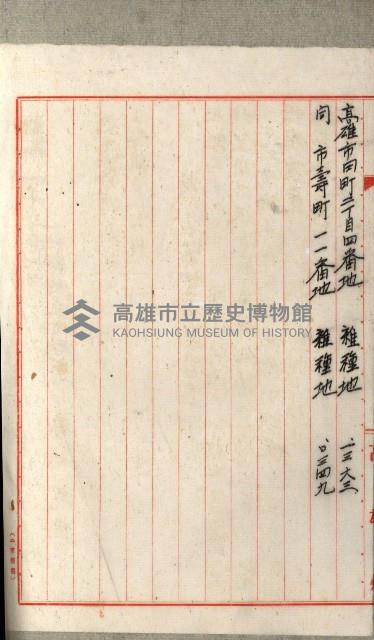 高雄市田町三丁目四番地 雜種地 一、三六三
同 市壽町一一番地 雜種地 〇、三四九
高雄市立歷史博物館
KAOHSIUNG MUSEUM OF HISTORY